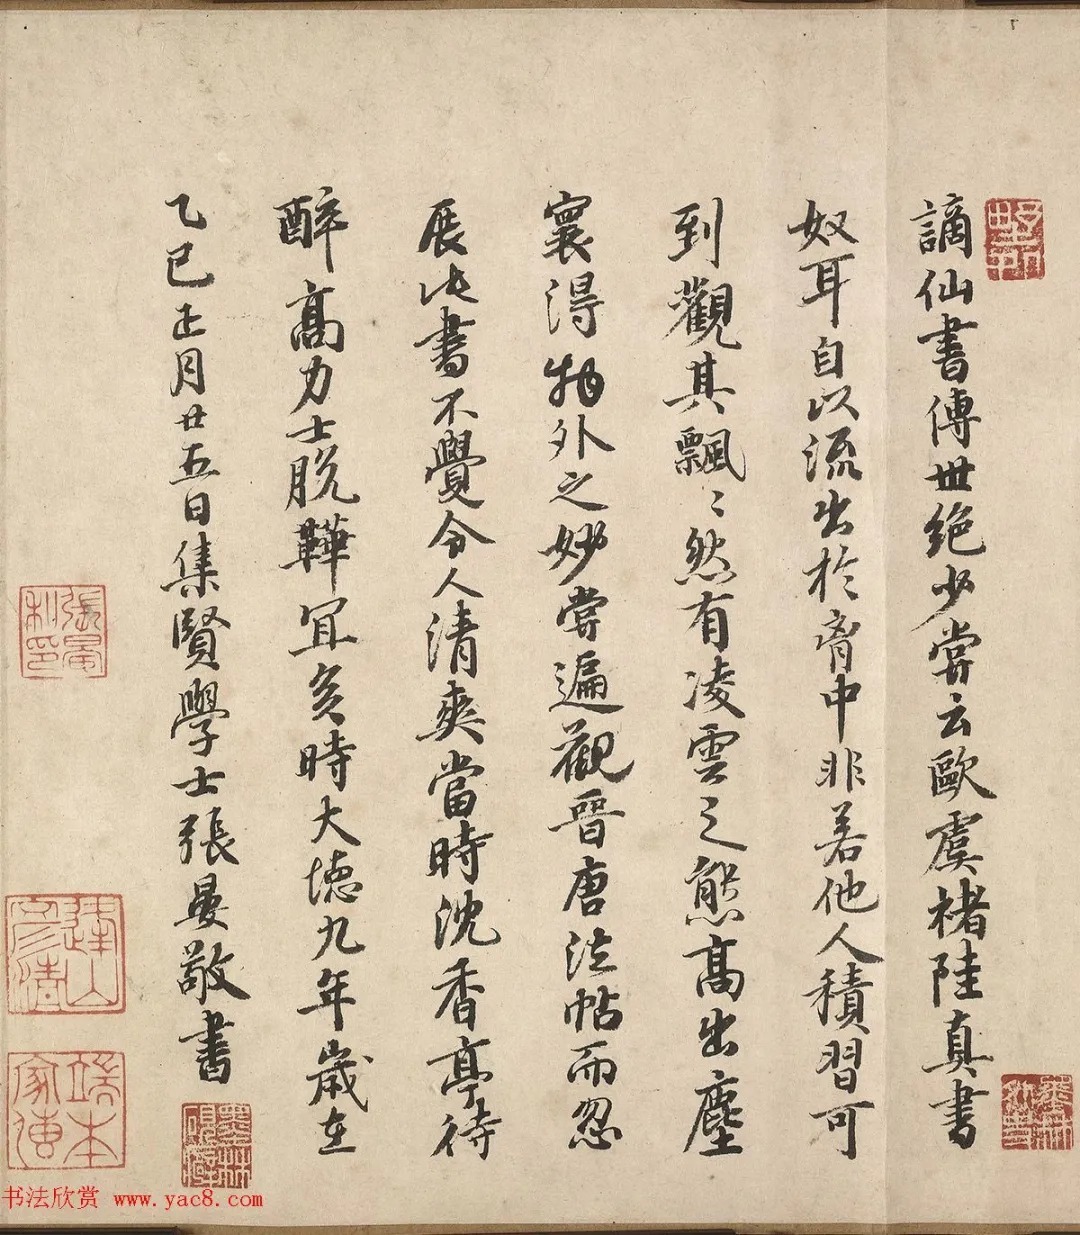 謫仙書傳世絕少嘗云歐虞褚陸真書
奴耳自以流出於胷中非若他人積習可
到觀其飄〻然有凌雲之態高出塵
寰得物外之妙嘗遍觀晉唐法帖而忽
展此書不覺令人清爽當時沈香亭待
醉高力士脫鞾冝矣時大德九年歲在
乙巳正月廿五日集賢學士張晏敬書
張晏私印
端本家傳
书法欣赏 www.yac8.com